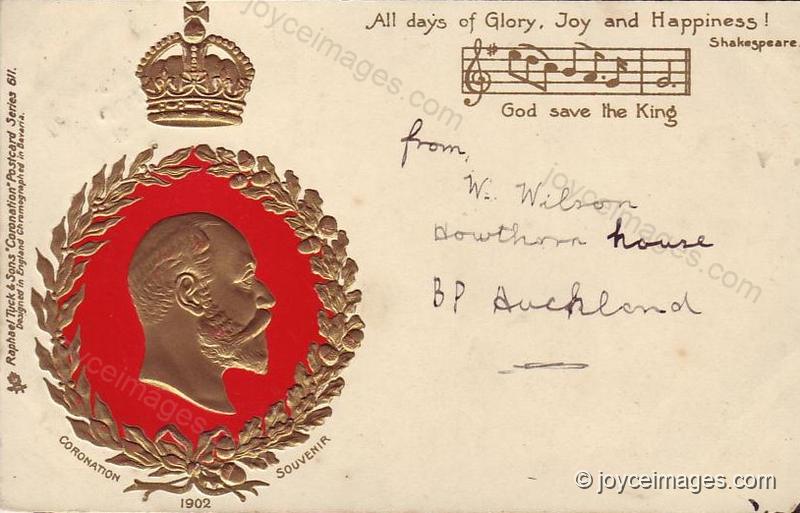 All days of Glory, Joy and Happiness!
Shakespeare.
God save the King
from,
W. Wilson
Howthorn house
BP Auckland
Raphael Tuck & Sons' "Coronation" Postcard Series 611.
Designed in England Chromographed in Bavaria.
CORONATION SOUVENIR
1902
joyceimages.com
joyceimages.com
joyceimages.com
joyceimages.com
© joyceimages.com